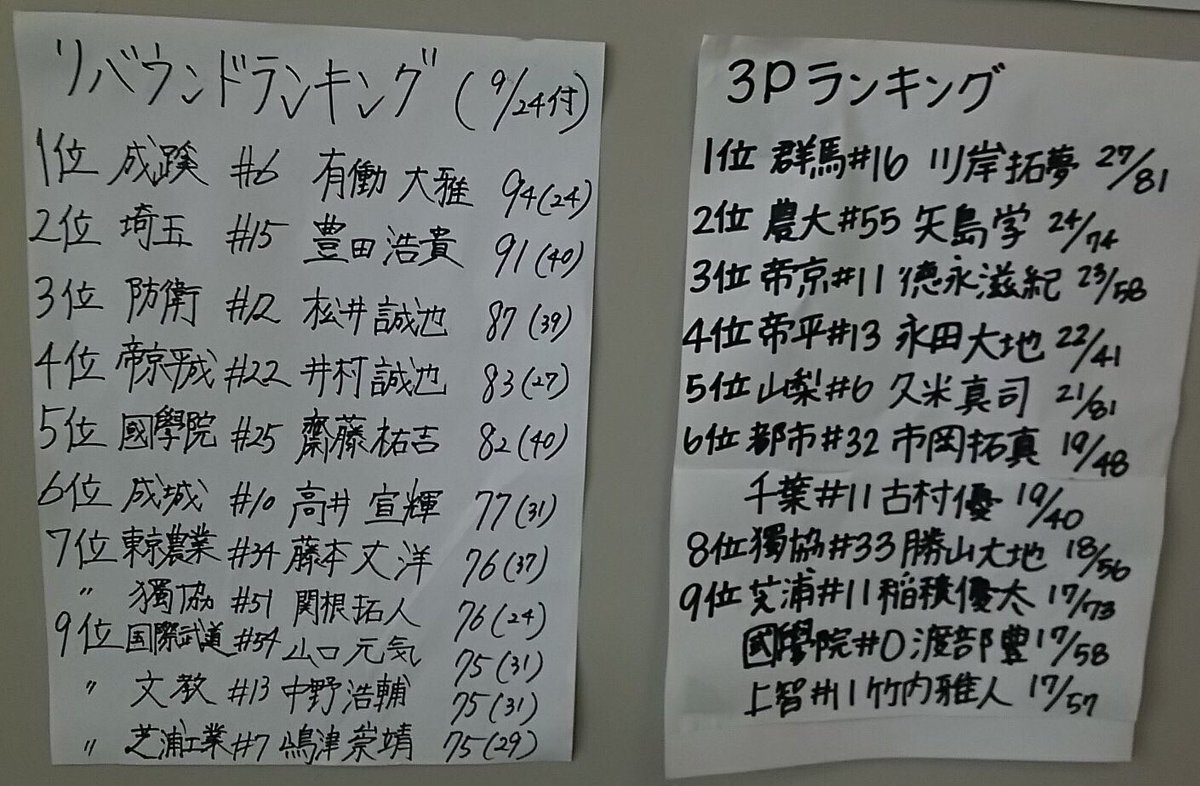 リバウンドランキング (9/24付)
1位 成蹊 #6 有働 大雅 94(24)
2位 埼玉 #15 豊田浩貴 91(40)
3位 防衛 #12 松井誠也 87(39)
4位 帝京平成 #22 井村誠也 83(27)
5位 國學院 #25 齋藤祐吉 82(40)
6位 成城 #10 高井 宣輝 77(31)
7位 東京農業 #34 藤本丈洋 76(37)
〃 獨協 #51 関根拓人 76(24)
9位 国際武道 #54 山口元気 75(31)
〃 文教 #13 中野浩輔 75(31)
〃 芝浦工業 #7 嶋津崇靖 75(29)
3Pランキング
1位 群馬#16 川岸拓夢 27/81
2位 農大#55 矢島学 24/74
3位 帝京#11 徳永滋紀 23/58
4位 帝平#13 永田大地 22/41
5位 山梨#6 久米真司 21/81
6位 都市#32 市岡拓真 19/48
千葉#11 古村優 19/40
8位 獨協#33 勝山大地 18/56
9位 芝浦#11 稲積優太 17/73
國學院#0 渡部豊 17/58
上智#1 竹内雅人 17/57